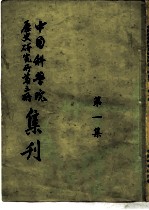 中国科学院
历史研究所第三所
集刊
第一集